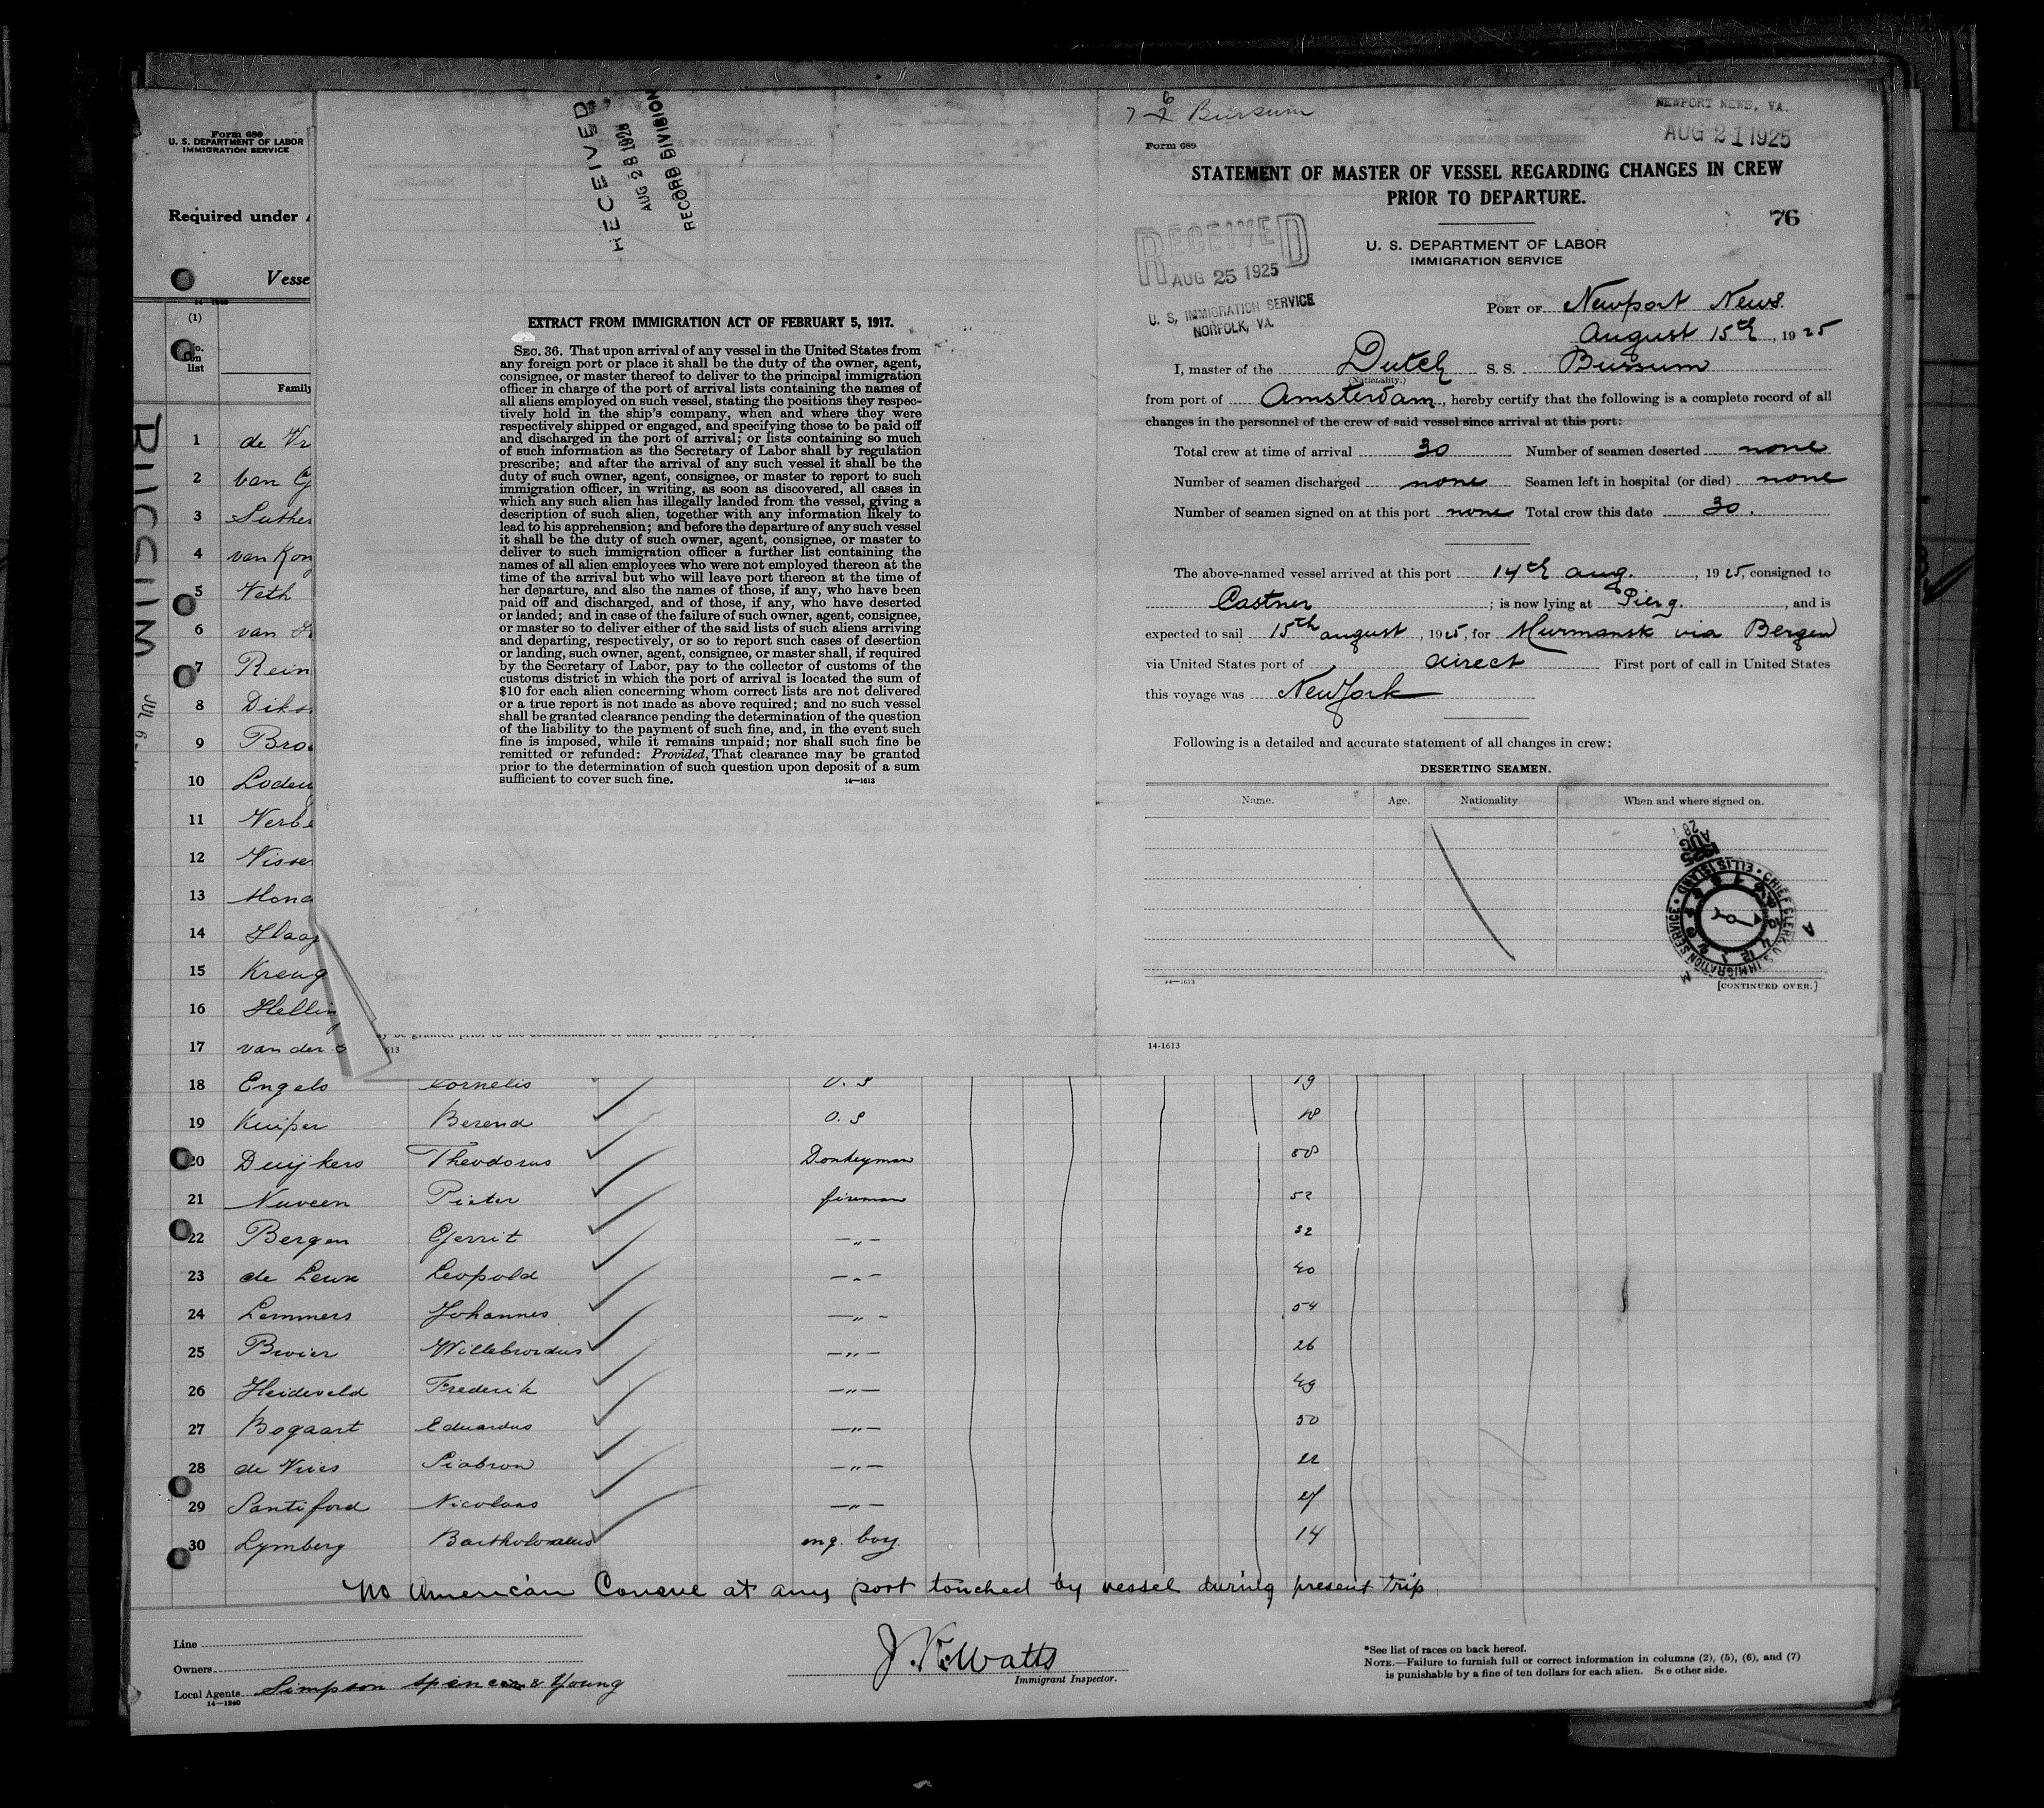 Form 680
U. S. DEPARTMENT OF LABOR
IMMIGRATION SERVICE
Required under
Vesse
14—1240
(1)
No.
on
list
Family
BUSSUM
JUL 6
1 de Vr
2 van G
3 Luther
4 van Kon
5 Veth
6 van
7 Rein
8 Diks
9 Bro
10 Lodew
11 Verbe
12 Visse
13 Mond
14 Haag
15 Kreug
16 Helling
17 van der
18 Engels Cornelis O. S 19
19 Kuiper Berend O. S 18
20 Duijkers Theodorus Donkeyman 58
21 Nuveen Pieter fireman 52
22 Bergen Gerrit —„— 32
23 de Leux Leopold —„— 40
24 Lemmers Johannes —„— 54
25 Bwier Willebrordus —„— 26
26 Heideveld Frederik —„— 49
27 Bogaart Eduardus —„— 50
28 de Vries Siabron —„— 22
29 Santiford Nicolaas —„— 27
30 Lymberg Bartholomeus eng. boy 14
No American Consul at any port touched by vessel during present trip
Line
Owners
Local Agents Simpson Spence & Young
14—1240
J. K. Watts
Immigrant Inspector.
*See list of races on back hereof.
NOTE.—Failure to furnish full or correct information in columns (2), (5), (6), and (7)
is punishable by a fine of ten dollars for each alien. See other side.
RECEIVED
AUG 28 1925
RECORD DIVISION
EXTRACT FROM IMMIGRATION ACT OF FEBRUARY 5, 1917.
SEC. 36. That upon arrival of any vessel in the United States from
any foreign port or place it shall be the duty of the owner, agent,
consignee, or master thereof to deliver to the principal immigration
officer in charge of the port of arrival lists containing the names of
all aliens employed on such vessel, stating the positions they respec-
tively hold in the ship's company, when and where they were
respectively shipped or engaged, and specifying those to be paid off
and discharged in the port of arrival; or lists containing so much
of such information as the Secretary of Labor shall by regulation
prescribe; and after the arrival of any such vessel it shall be the
duty of such owner, agent, consignee, or master to report to such
immigration officer, in writing, as soon as discovered, all cases in
which any such alien has illegally landed from the vessel, giving a
description of such alien, together with any information likely to
lead to his apprehension; and before the departure of any such vessel
it shall be the duty of such owner, agent, consignee, or master to
deliver to such immigration officer a further list containing the
names of all alien employees who were not employed thereon at the
time of the arrival but who will leave port thereon at the time of
her departure, and also the names of those, if any, who have been
paid off and discharged, and of those, if any, who have deserted
or landed; and in case of the failure of such owner, agent, consignee,
or master so to deliver either of the said lists of such aliens arriving
and departing, respectively, or so to report such cases of desertion
or landing, such owner, agent, consignee, or master shall, if required
by the Secretary of Labor, pay to the collector of customs of the
customs district in which the port of arrival is located the sum of
$10 for each alien concerning whom correct lists are not delivered
or a true report is not made as above required; and no such vessel
shall be granted clearance pending the determination of the question
of the liability to the payment of such fine, and, in the event such
fine is imposed, while it remains unpaid; nor shall such fine be
remitted or refunded: Provided, That clearance may be granted
prior to the determination of such question upon deposit of a sum
sufficient to cover such fine. 14—1613
y be granted prior to the determination of such question
613
14-1613
Bussum
NEWPORT NEWS, VA.
AUG 21 1925
Form 689
STATEMENT OF MASTER OF VESSEL REGARDING CHANGES IN CREW
PRIOR TO DEPARTURE.
76
U. S. DEPARTMENT OF LABOR
IMMIGRATION SERVICE
RECEIVED
AUG 25 1925
U. S. IMMIGRATION SERVICE
NORFOLK, VA.
PORT OF Newport News.
August 15th, 1925
I, master of the Dutch S. S. Bussum
(Nationality.)
from port of Amsterdam, hereby certify that the following is a complete record of all
changes in the personnel of the crew of said vessel since arrival at this port:
Total crew at time of arrival 30 Number of seamen deserted none
Number of seamen discharged none Seamen left in hospital (or died) none
Number of seamen signed on at this port none Total crew this date 30.
The above-named vessel arrived at this port 14th Aug., 1925, consigned to
Castner; is now lying at Pier 9., and is
expected to sail 15th august, 1925, for Murmansk via Bergen
via United States port of direct First port of call in United States
this voyage was New York
Following is a detailed and accurate statement of all changes in crew:
DESERTING SEAMEN.
Name. Age. Nationality When and where signed on.
28
AUG
1925
CHIEF CLERK, U.S. IMMIGRATION SERVICE • ELLIS ISLAND
A
M
14—1613
[CONTINUED OVER.]